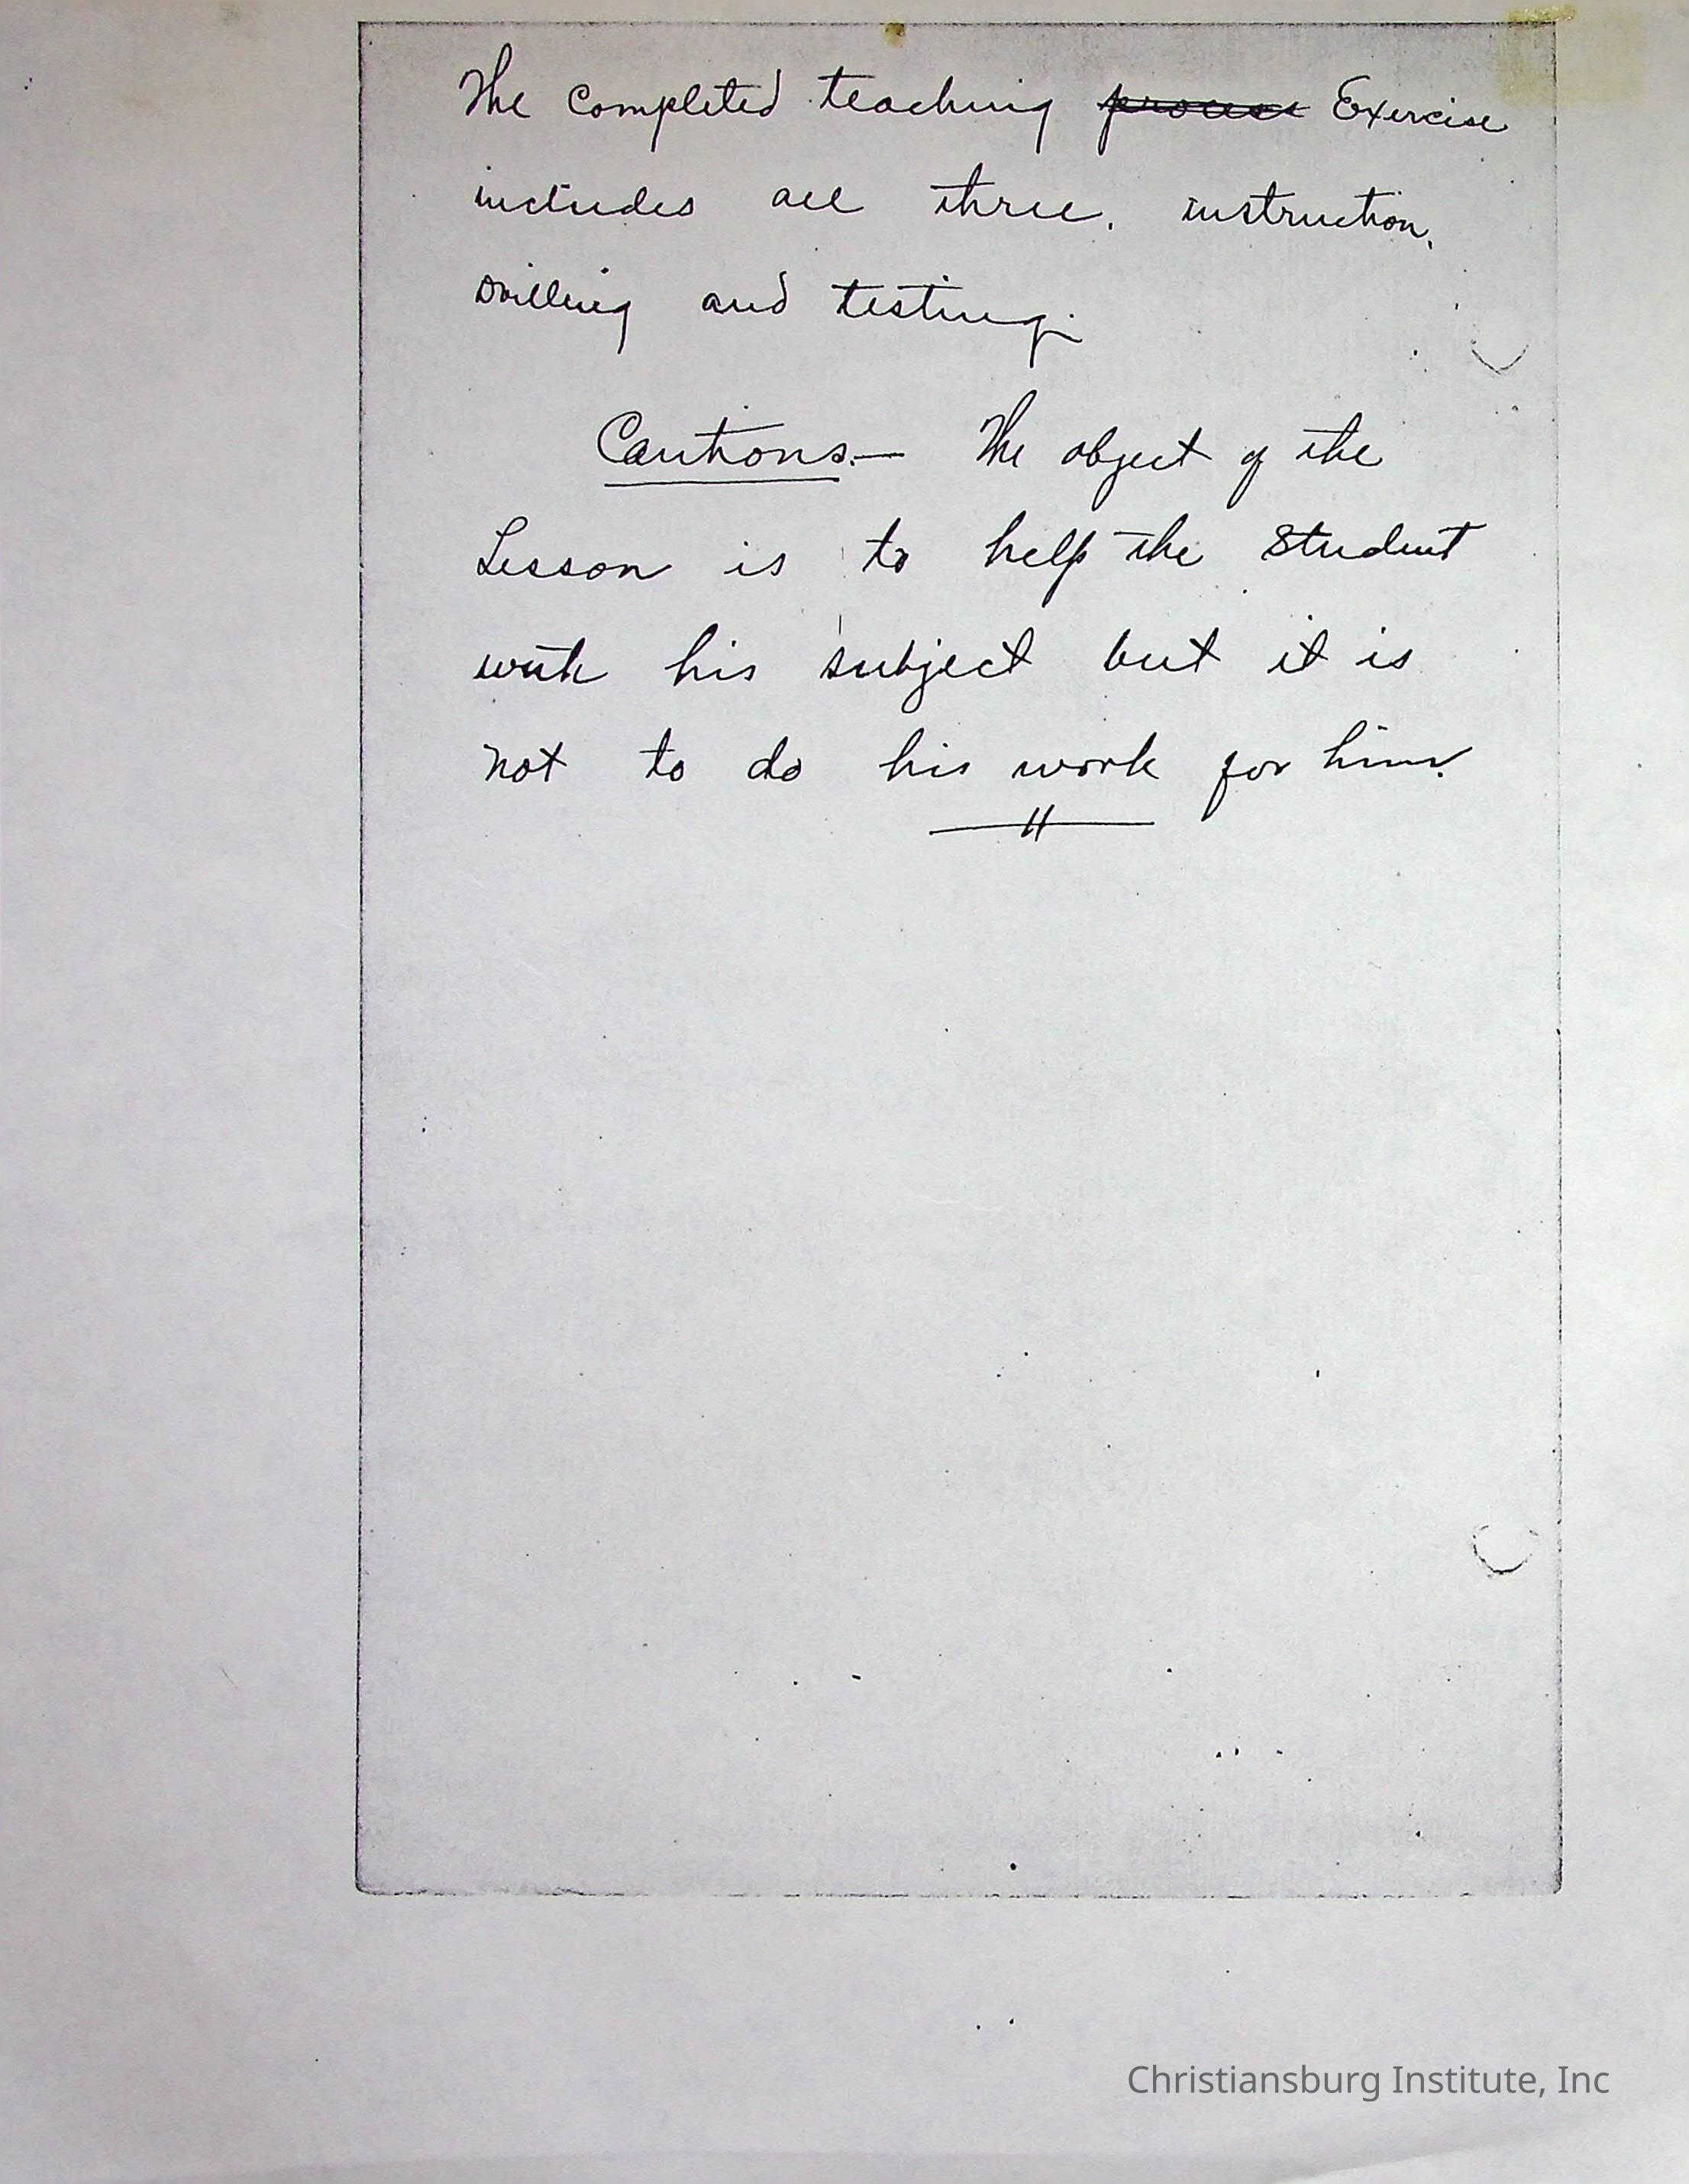 The completed teaching process Exercise
includes all three. instruction,
Drilling and testing.
Cautions.— The object of the
Lesson is to help the Student
with his subject but it is
not to do his work for him.
Christiansburg Institute, Inc